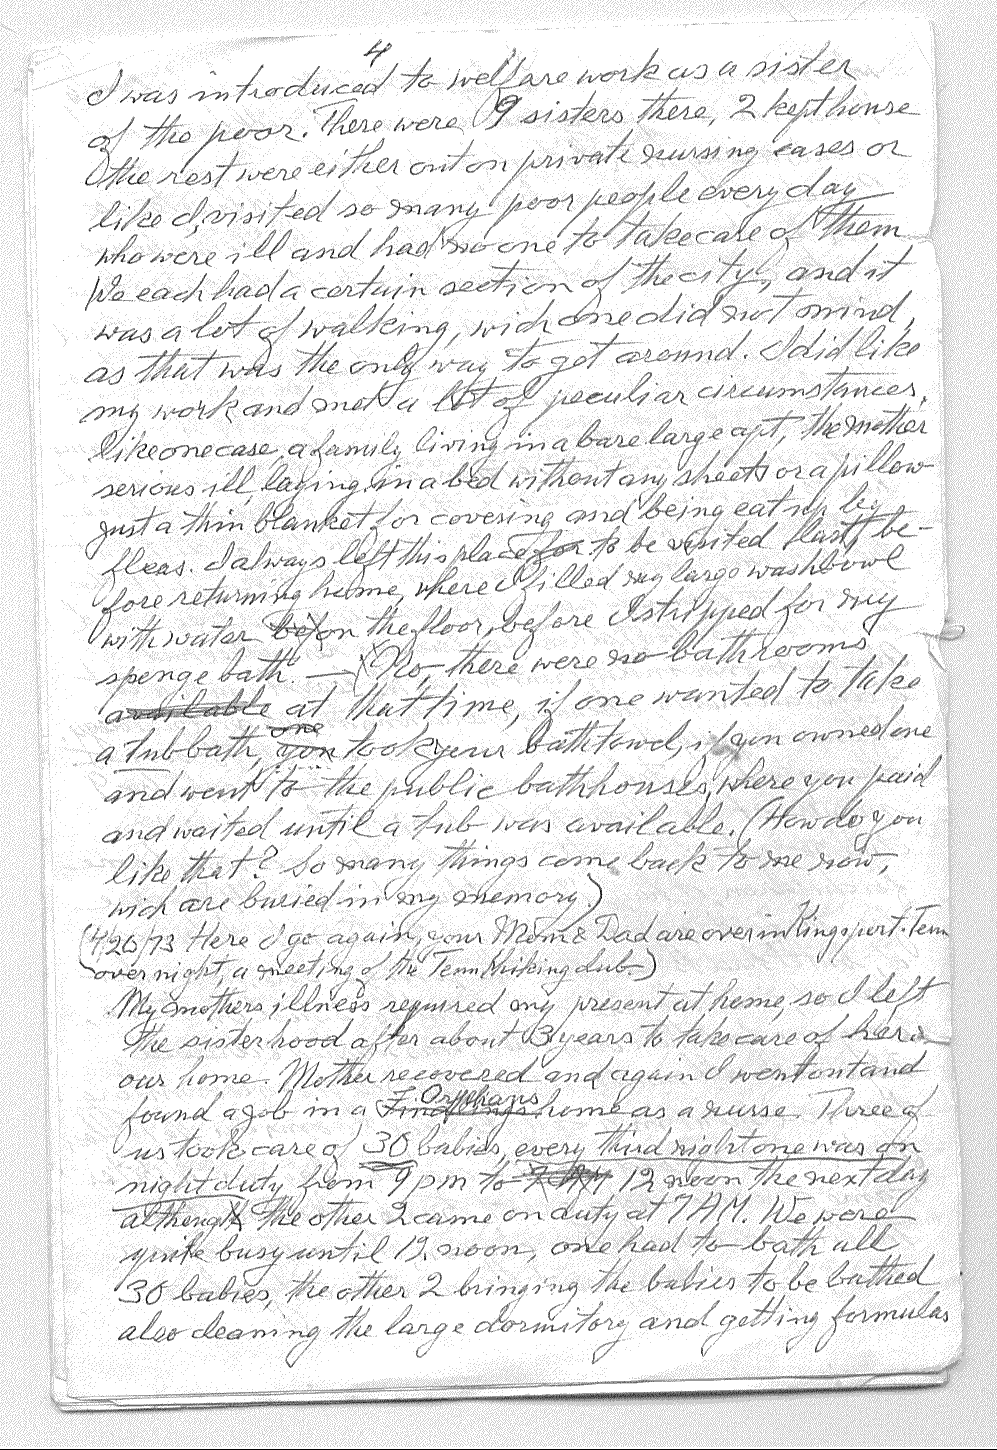 4
I was introduced to welfare work as a sister
of the poor. There were 9 sisters there, 2 kept house
the rest were either out on private nursing cases or
like I, visited so many poor people every day
who were ill and had no one to take care of them
We each had a certain section of the city, and it
was a lot of walking, wich one did not mind,
as that was the only way to get around. I did like
my work and met a lot of peculiar circumstances,
like one case, a family living in a bare large apt, the mother
serious ill, laying in a bed without any sheets or a pillow
just a thin blanket for covering and being eat up by
fleas. I always left this place for to be visited last, be-
fore returning home, where I filled my large washbowl
with water bef on the floor, before I stripped for my
spenge bath. — No, there were no bathrooms
available at that time, if one wanted to take
a tub bath, you one took your bathtowel, if you owned one
and went to the public bathhouses, where you paid
and waited until a tub was available. (How do you
like that? So many things come back to me now,
wich are buried in my memory)
(4/26/73 Here I go again, your Mom & Dad are over in Kingsport. Tenn
over night, a meeting of the Tenn hiking club.)
My mothers illness required my present at home, so I left
the sisterhood after about 3 years to take care of her.
our home. Mother recovered and again I went out and
found a job in a Findlings Orphans home as a nurse. Three of
us took care of 30 babies, every third night one was on
night duty from 9 pm to 7 AM 12 noon the next day
although the other 2 came on duty at 7 AM. We were
quite busy until 12 noon, one had to bath all
30 babies, the other 2 bringing the babies to be bathed
also cleaning the large dormitory and getting formulas